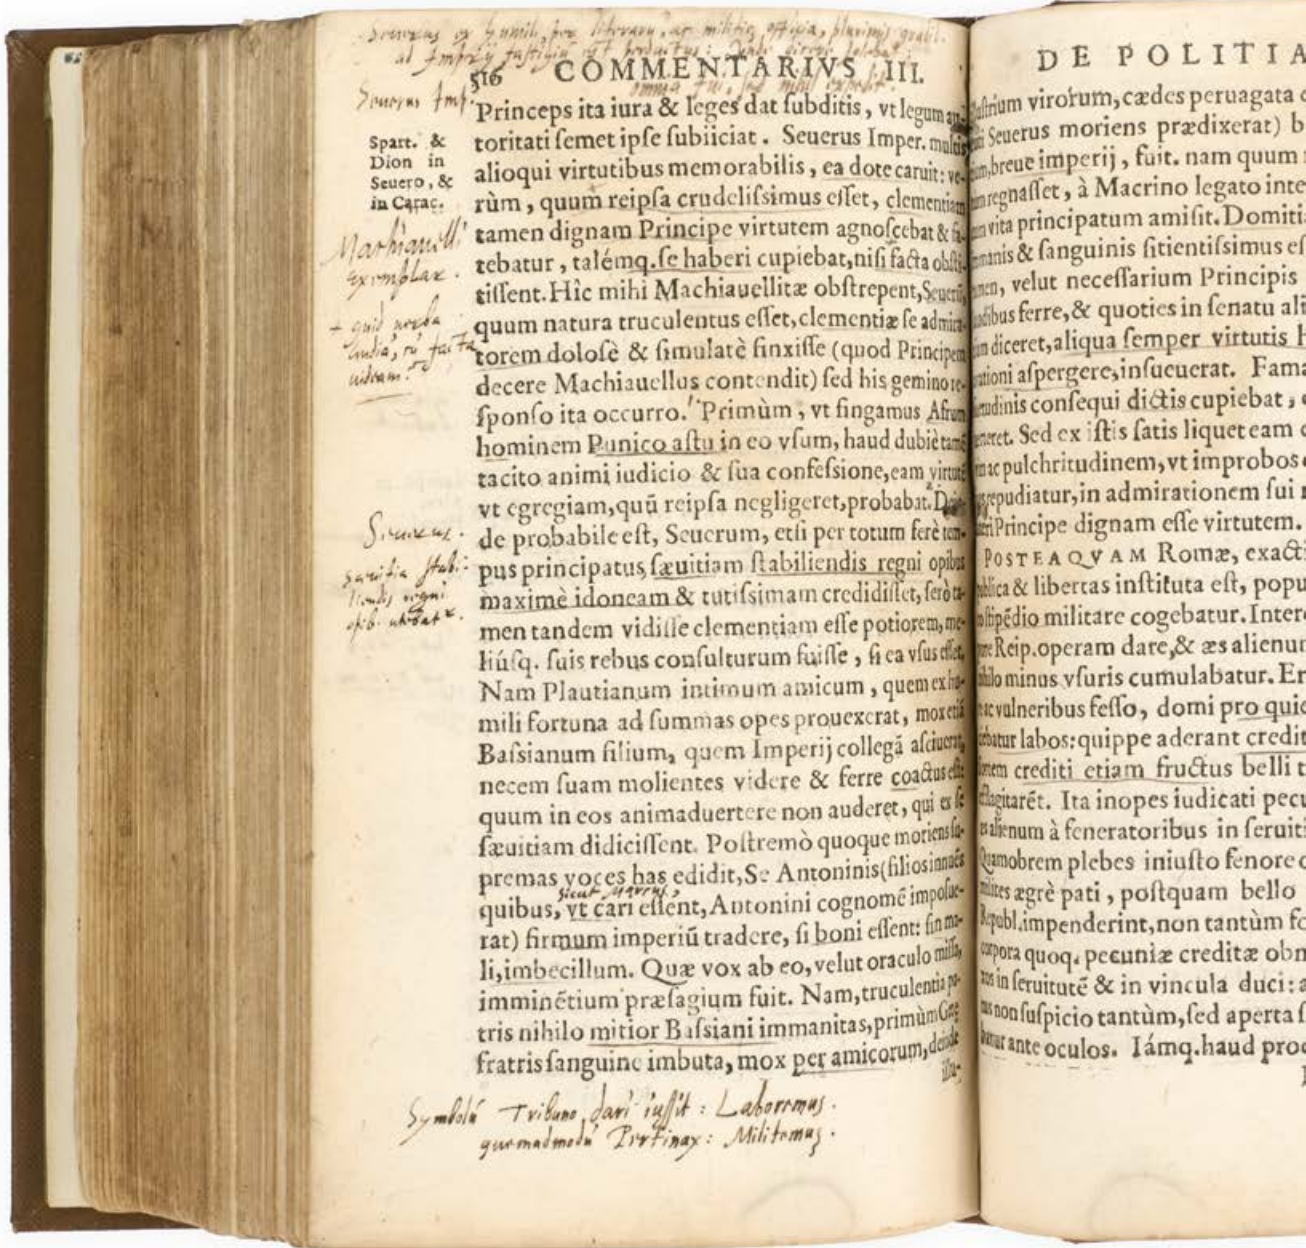 Seuerus ex humili, per literarū, ac militiæ officia, plurimis gradib.
ad Imperij fastigiū est perductus: dicere solebat:
omnia fui, sed nihil expedit.
516 COMMENTARIVS III.
Seuerus Imp.
Spart. &
Dion in
Seuero, &
in Carac.
Machiauelli
exemplar.
+ quid verba
audiā, cū facta
uideam?
Seuerus
sæuitia stabi-
liendis regni
opib. utebatr.
Princeps ita iura & leges dat ſubditis, vt legum au-
toritati ſemet ipſe ſubiiciat. Seuerus Imper. multis
alioqui virtutibus memorabilis, ea dote caruit: ve-
rùm, quum reipſa crudeliſsimus eſſet, clementiam
tamen dignam Principe virtutem agnoſcebat & fa-
tebatur, talémq. ſe haberi cupiebat, niſi facta obſti-
tiſſent. Hîc mihi Machiauellitæ obſtrepent, Seuerū,
quum natura truculentus eſſet, clementiæ ſe admira-
torem doloſè & ſimulatè finxiſſe (quod Principem
decere Machiauellus contendit) ſed his gemino re-
ſponſo ita occurro. Primùm, vt fingamus Afrum
hominem Punico aſtu in eo vſum, haud dubiè tamē
tacito animi iudicio & ſua confeſsione, eam virtutē
vt egregiam, quū reipſa negligeret, probabat. Dein-
de probabile eſt, Seuerum, etſi per totum ferè tem-
pus principatus, ſæuitiam ſtabiliendis regni opibus
maximè idoneam & tutiſsimam credidiſſet, ſerò ta-
men tandem vidiſſe clementiam eſſe potiorem, me-
liúſq. ſuis rebus conſulturum fuiſſe, ſi ea vſus eſſet.
Nam Plautianum intimum amicum, quem ex hu-
mili fortuna ad ſummas opes prouexerat, mox etiā
Baſsianum filium, quem Imperij collegā aſciuerat,
necem ſuam molientes videre & ferre coactus eſt:
quum in eos animaduertere non auderet, qui ex ſe
ſæuitiam didiciſſent. Poſtremò quoque moriens ſu-
premas voces has edidit, Se Antoninis (filios innuēs
sicut Marcus,
quibus, vt cari eſſent, Antonini cognomē impoſue-
rat) firmum imperiū tradere, ſi boni eſſent: ſin ma-
li, imbecillum. Quæ vox ab eo, velut oraculo miſſa,
imminētium præſagium fuit. Nam, truculentia pa-
tris nihilo mitior Baſsiani immanitas, primùm Getæ
fratris ſanguine imbuta, mox per amicorum, deinde
illu-
Symbolū Tribuno dari iussit: Laboremus.
quemadmodū Pertinax: Militemus.
DE POLITIA
luſtrium virorum, cædes peruagata
Seuerus moriens prædixerat) b
breue imperij, fuit. nam quum
regnaſſet, à Macrino legato inte
vita principatum amiſit. Domiti
& ſanguinis ſitientiſsimus eſ
velut neceſſarium Principis
ferre, & quoties in ſenatu ali
diceret, aliqua ſemper virtutis
aſpergere, inſueuerat. Fama
conſequi dictis cupiebat,
Sed ex iſtis ſatis liquet eam
ac pulchritudinem, vt improbos
repudiatur, in admirationem ſui
Principe dignam eſſe virtutem.
POSTEAQVAM Romæ, exacti
& libertas inſtituta eſt, popu
ſtipēdio militare cogebatur. Inter
Reip. operam dare, & æs alienum
nihilo minus vſuris cumulabatur. Er
ac vulneribus feſſo, domi pro quie
labos: quippe aderant credit
crediti etiam fructus belli
flagitarēt. Ita inopes iudicati pecu
alienum à feneratoribus in ſeruit
Quamobrem plebes iniuſto fenore
milites ægrè pati, poſtquam bello
Republ. impenderint, non tantùm fo
corpora quoq. pecuniæ creditæ obn
in ſeruitutē & in vincula duci: a
non ſuſpicio tantùm, ſed aperta
ante oculos. Iámq. haud proc